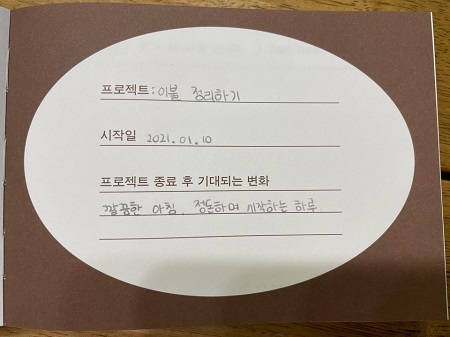 프로젝트 : 이불 정리하기
시작일 2021.01.10
프로젝트 종료 후 기대되는 변화
깔끔한 아침. 정돈하며 시작하는 하루